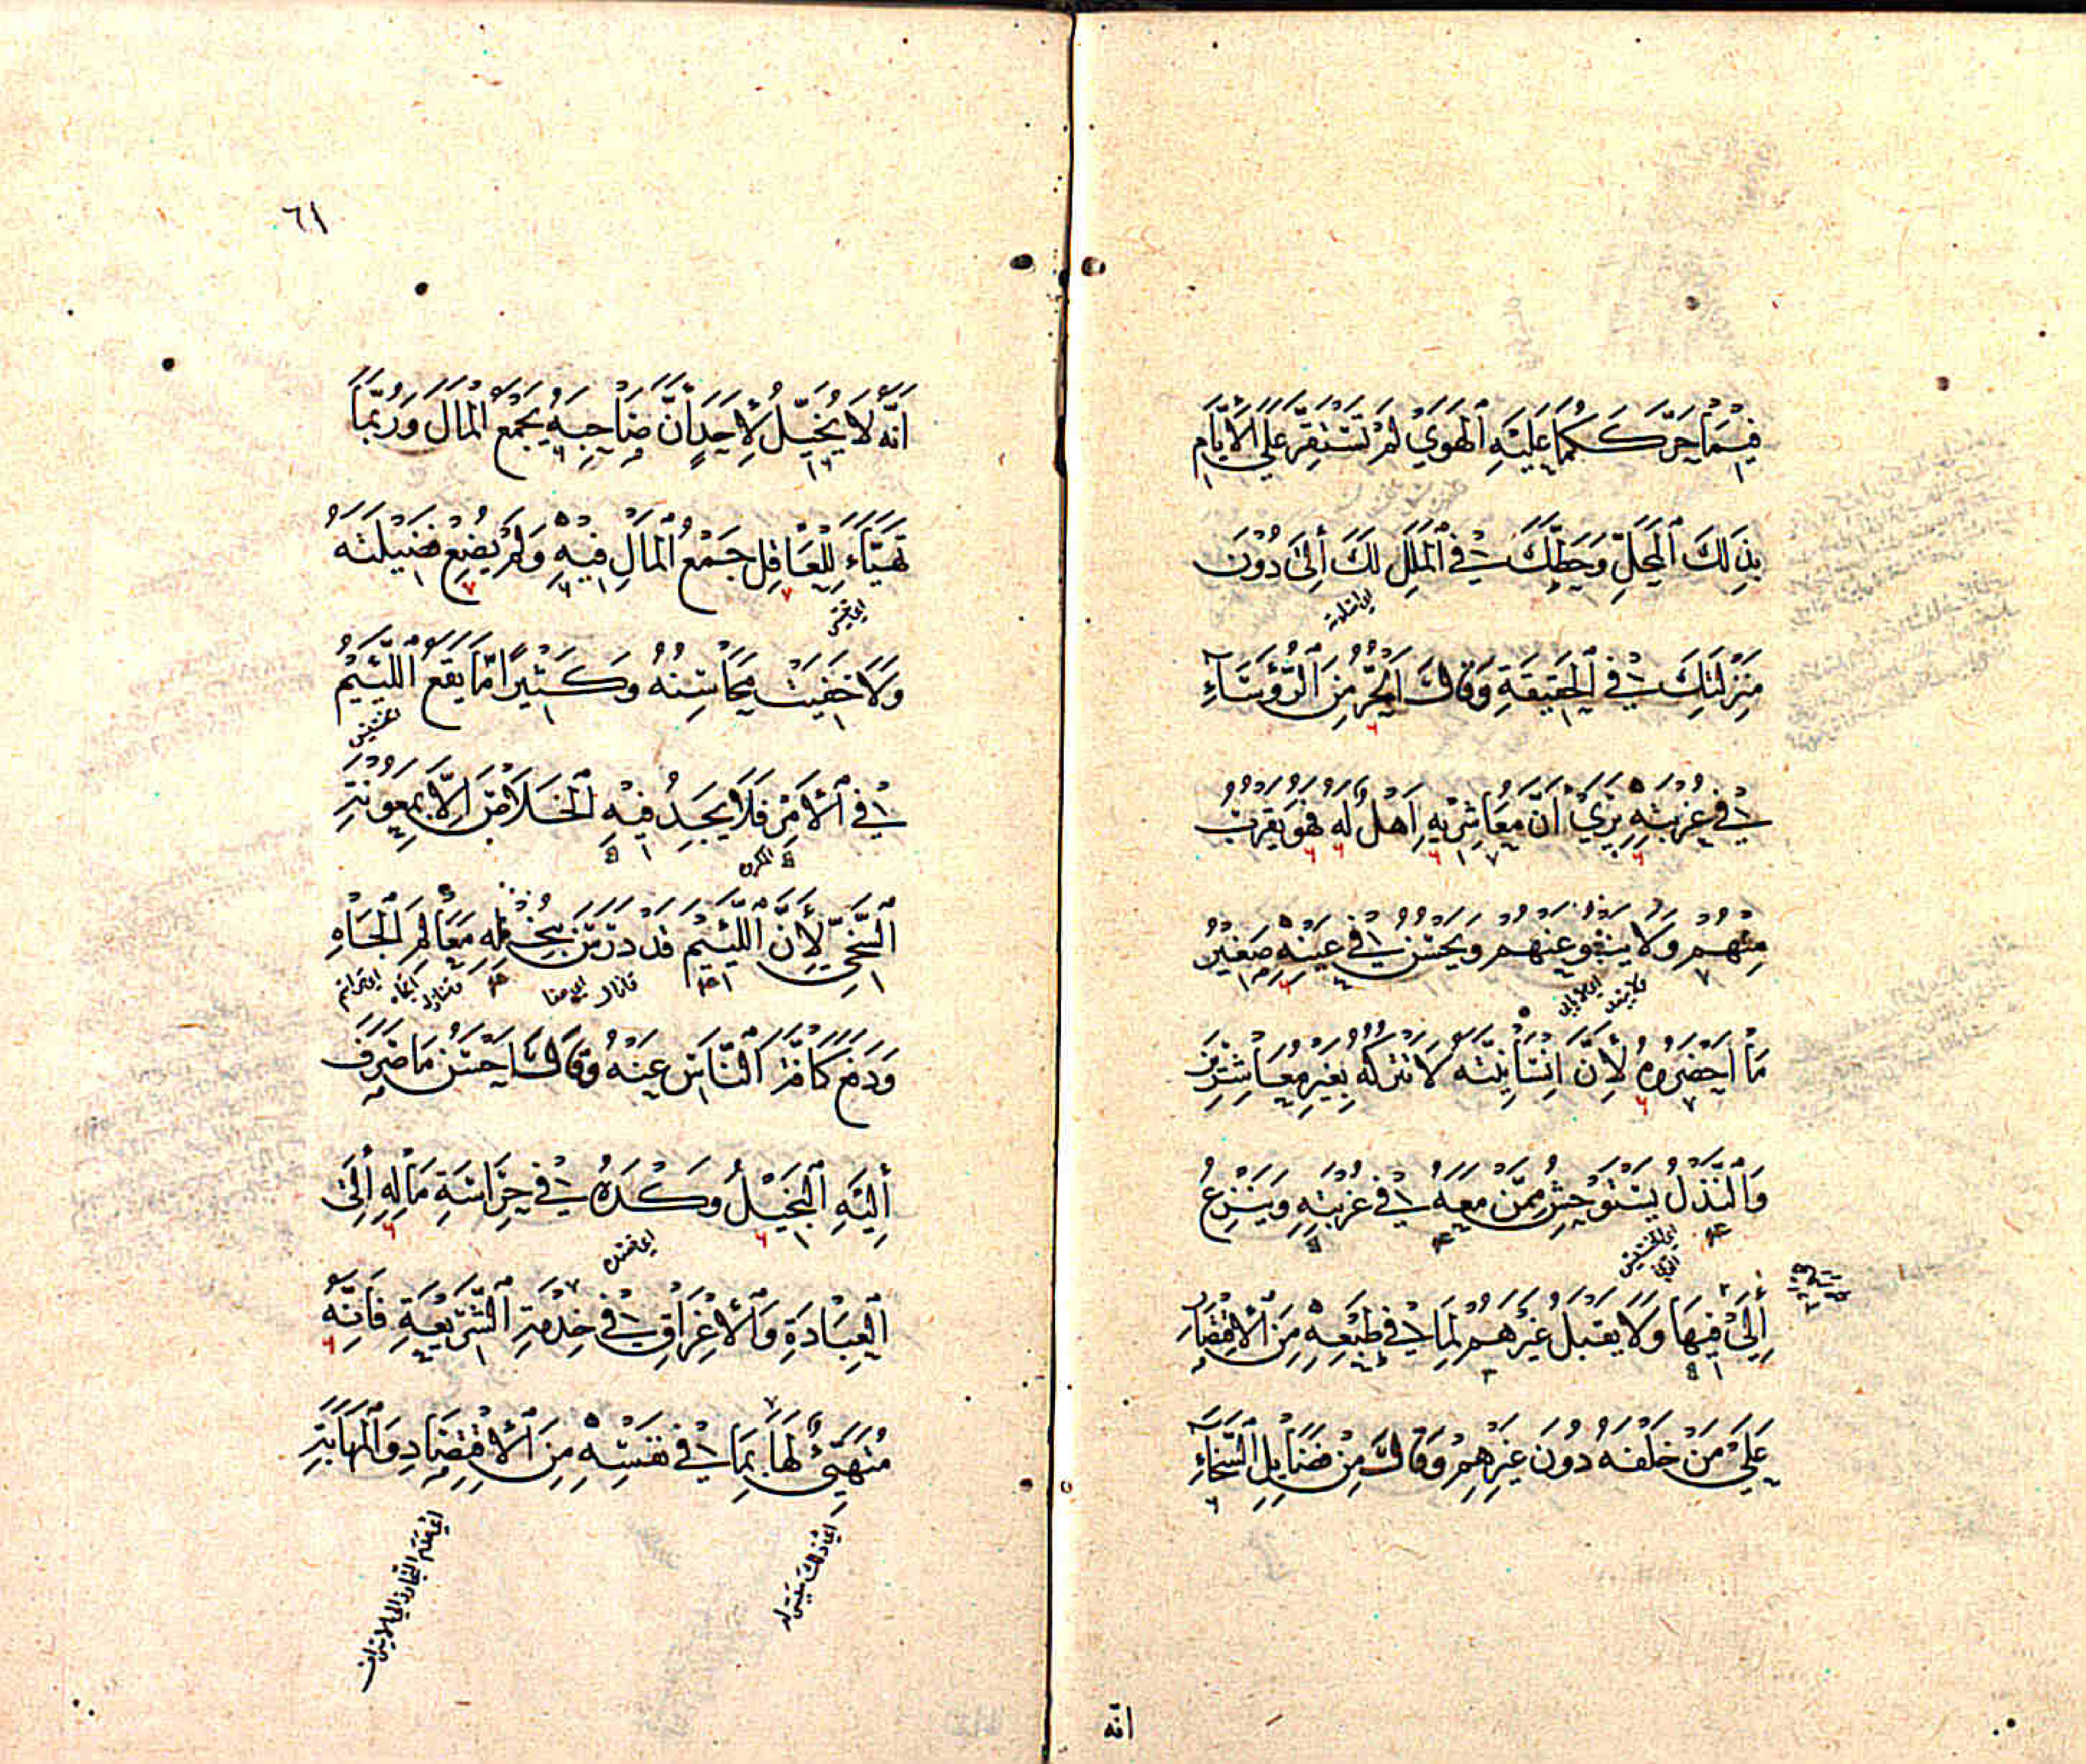 فِيْمَا حَرَّكَكُمَا عَلَيْهِ الْهَوَى لَمْ تَسْتَقِرَّ عَلَى الْأَيَّامِ
بِذَلِكَ الْمَحَلِّ وَحَطِّكَ فِي الْمَلَلِ لَكَ إِلَى دُوْنَ
اى اسلامه
مَنْزِلَتِكَ فِي الْحَقِيْقَةِ وَقَالَ الْحُرُّ مِنَ الرُّؤَسَاءِ
فِي غُرْبَتِهِ يَرَى أَنَّ مُعَاشِرِيْهِ أَهْلٌ لَهُ فَهُوَ يَقْرُبُ
مِنْهُمْ وَلَا يَنْبُو عَنْهُمْ وَيَحْسُنُ فِي عَيْنِهِ صَغِيْرُ
مَا أَحْضَرُوهُ لِأَنَّ إِنْسَانِيَّتَهُ لَا تَتْرُكُهُ بِغَيْرِ مُعَاشِرِيْنَ
وَالنَّذْلُ يَسْتَوْحِشُ مِمَّنْ مَعَهُ فِي غُرْبَتِهِ وَيَنْزِعُ
اى الخسيس
إِلَى فِيْهَا وَلَا يَقْبَلُ غَيْرَهُمْ لِمَا فِي طَبْعِهِ مِنَ الْأَقْتِصَارِ
عَلَى مَنْ خَلَّفَهُ دُوْنَ غَيْرِهِمْ وَقَالَ مِنْ فَضَايِلِ السَّخَاءِ
انّه
٦١
أَنَّهُ لَا يُخَيَّلُ لِأَحَدٍ أَنَّ صَاحِبَهُ يَجْمَعُ الْمَالَ وَرُبَّمَا
تَهَيَّاءَ لِلْعَاقِلِ جَمْعُ الْمَالِ فِيْهِ وَلَمْ يُضِعْ فَضِيْلَتَهُ
وَلَا خَفِيَتْ مَحَاسِنُهُ وَكَثِيْرًا مَّا يَقَعُ اللَّئِيْمُ
فِي الْأَمْرِ فَلَا يَجِدُ فِيْهِ الْخَلَاصَ إِلَّا بِمَعُوْنَةِ
السَّخِيِّ لِأَنَّ اللَّئِيْمَ قَدْ دَرَسَ بِبُخْلِهِ مَعَالِمَ الْجَاهِ
وَدَفَعَ كَافَّةَ النَّاسِ عَنْهُ وَقَالَ أَحْسَنُ مَا صَرَفَ
إِلَيْهِ الْبَخِيْلُ وَكَدَهُ فِي حِرَاسَةِ مَالِهِ إِلَى
اى قصده
الْعِبَادَةِ وَالْأِغْرَاقِ فِي خِدْمَةِ الشَّرِيْعَةِ فَإِنَّهُ
مُتَهَيِّئٌ لَهَا بِمَا فِي نَفْسِهِ مِنَ الْأِقْتِصَادِ وَالْمَهَابَةِ